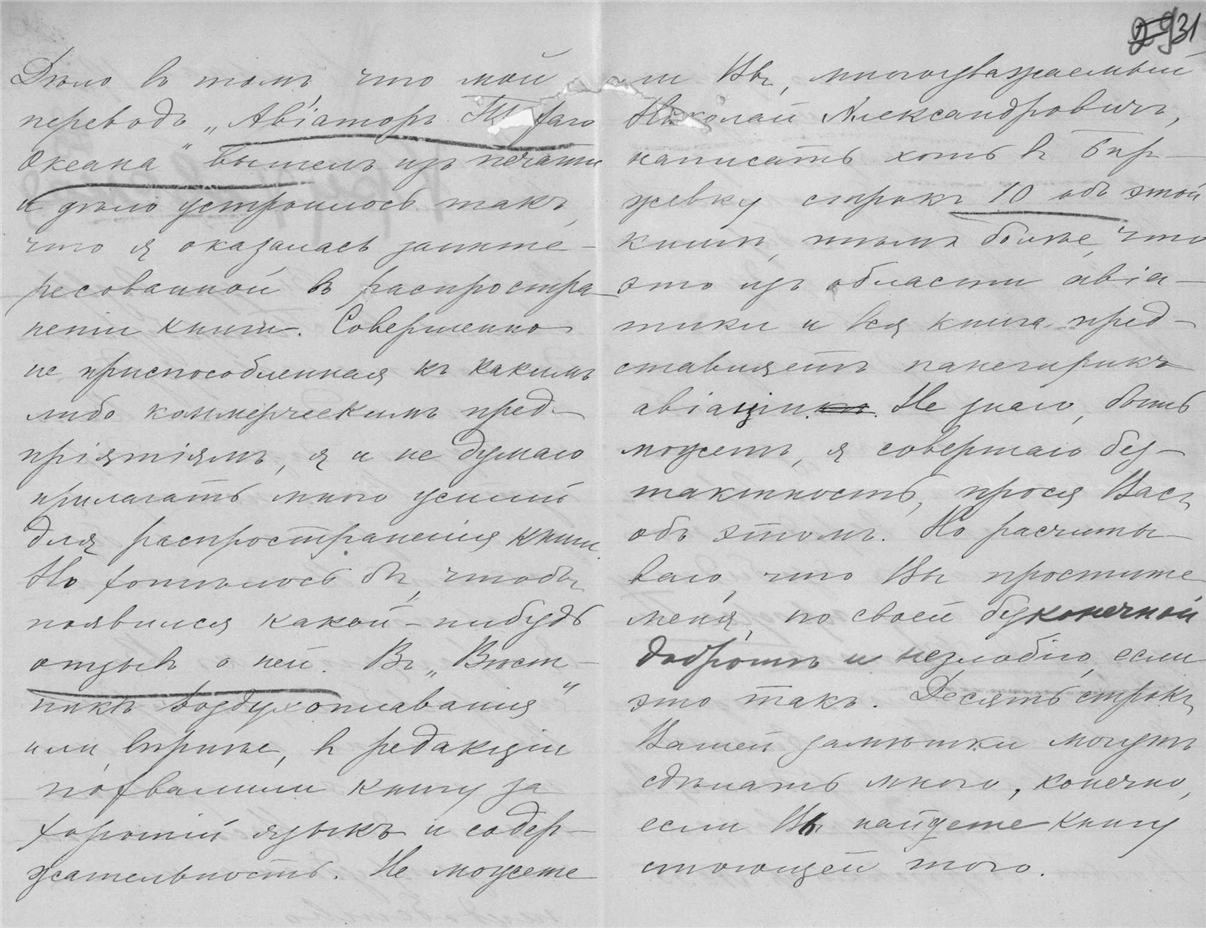 29 31
Дѣло въ томъ, что мой
переводъ „Авіаторъ Тихаго
Океана" вышелъ изъ печати
и дѣло устроилось такъ,
что я оказалась заинте-
ресованной въ распростра-
неніи книги. Совершенно
не приспособленная къ какимъ
либо коммерческимъ пред-
пріятіямъ, я и не думаю
прилагать много усилій
для распространенія книги.
Но хотѣлось бы, чтобы
появился какой-нибудь
отзывъ о ней. Въ „Вѣст-
никѣ Воздухоплаванія"
или, вѣрнѣе, въ редакціи
похвалили книгу за
хорошій языкъ и содер-
жательность. Не можете
ли Вы, многоуважаемый
Николай Александровичъ,
написать хоть въ Бир-
жевку строкъ 10 объ этой
книгѣ, тѣмъ болѣе, что
это изъ области авіа-
тики и вся книга пред-
ставляетъ панегирикъ
авіаціи. Не знаю, быть
можетъ, я совершаю без-
тактность, прося Васъ
объ этомъ. Но расчиты-
ваю, что Вы простите
меня, по своей безконечной
добротѣ и незлобію, если
это такъ. Десять строкъ
Вашей замѣтки могутъ
сдѣлать много, конечно,
если Вы найдете книгу
стоющей того.